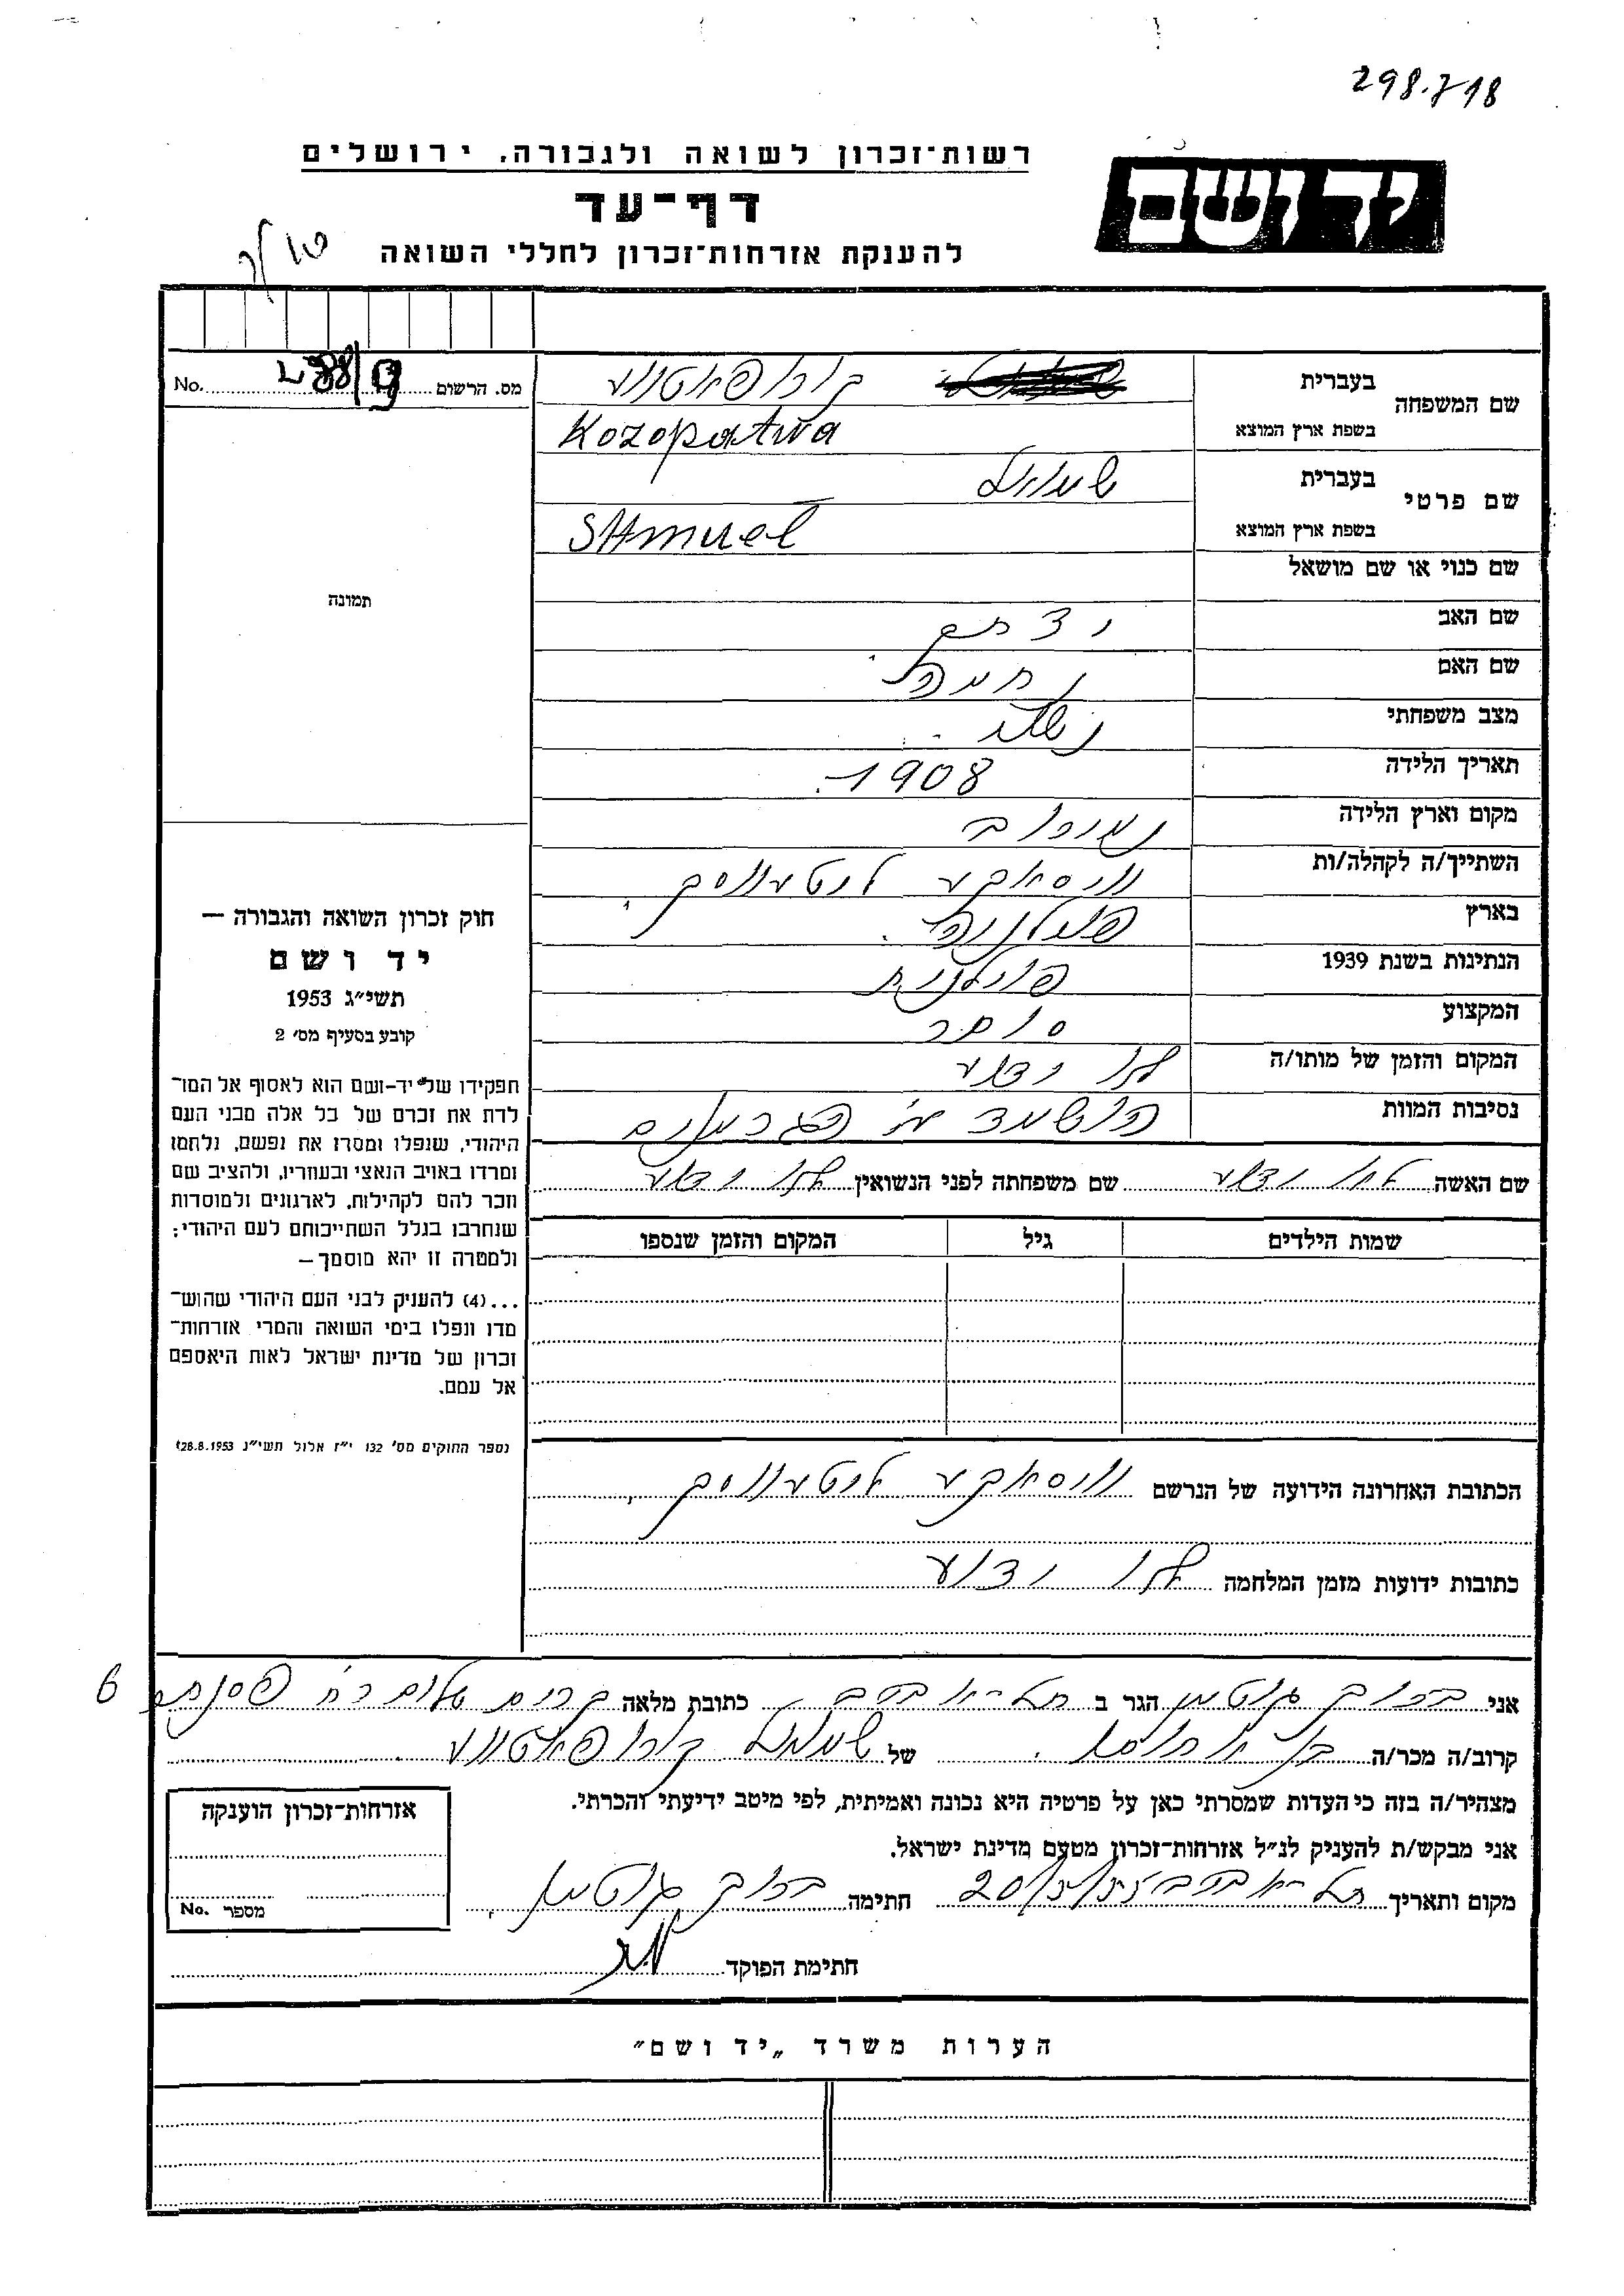 298.718
רשות־זכרון לשואה ולגבורה, ירושלים
יד ושם
דף־עד
להענקת אזרחות־זכרון לחללי השואה
No. מס. הרשום
שם המשפחה בעברית קוזופאטווע
בשפת ארץ המוצא Kozopatwa
שם פרטי בעברית שמואל
בשפת ארץ המוצא SHmuel
שם כנוי או שם מושאל
תמונה
שם האב
שם האם נחמה
מצב משפחתי נשוי
תאריך הלידה 1908
מקום וארץ הלידה
השתייך/ה לקהלה/ות וויסאקע ליטעווסק
בארץ פולניה
הנתינות בשנת 1939 פולנית
המקצוע סוחר
המקום והזמן של מותו/ה לא ידוע
נסיבות המוות הושמד ע״י הגרמנים
שם האשה לא ידוע שם משפחתה לפני הנשואין לא ידוע
שמות הילדים גיל המקום והזמן שנספו
חוק זכרון השואה והגבורה —
יד ושם
תשי״ג 1953
קובע בסעיף מס׳ 2
תפקידו של יד-ושם הוא לאסוף אל המו־
לדת את זכרם של כל אלה מבני העם
היהודי, שנפלו ומסרו את נפשם, נלחמו
ומרדו באויב הנאצי ובעוזריו, ולהציב שם
וזכר להם לקהילות, לארגונים ולמוסדות
שנחרבו בגלל השתייכותם לעם היהודי;
ולמטרה זו יהא מוסמך—
...(4) להעניק לבני העם היהודי שהוש־
מדו ונפלו בימי השואה והמרי אזרחות־
זכרון של מדינת ישראל לאות היאספם
אל עמם.
(ספר החוקים מס׳ 132 י״ז אלול תשי״ג 28.8.1953)
הכתובת האחרונה הידועה של הנרשם וויסאקע ליטעווסק
כתובות ידועות מזמן המלחמה לא ידוע
אני ברוך גוטמן הגר ב תל־אביב כתובת מלאה שלום רח׳ 6
קרוב/ה מכר/ה של שמואל קוזופאטווע
מצהיר/ה בזה כי העדות שמסרתי כאן על פרטיה היא נכונה ואמיתית, לפי מיטב ידיעתי והכרתי.
אני מבקש/ת להעניק לנ״ל אזרחות־זכרון מטעם מדינת ישראל.
מקום ותאריך תל־אביב חתימה ברוך גוטמן
חתימת הפוקד
אזרחות־זכרון הוענקה
No. מספר
הערות משרד „יד ושם״